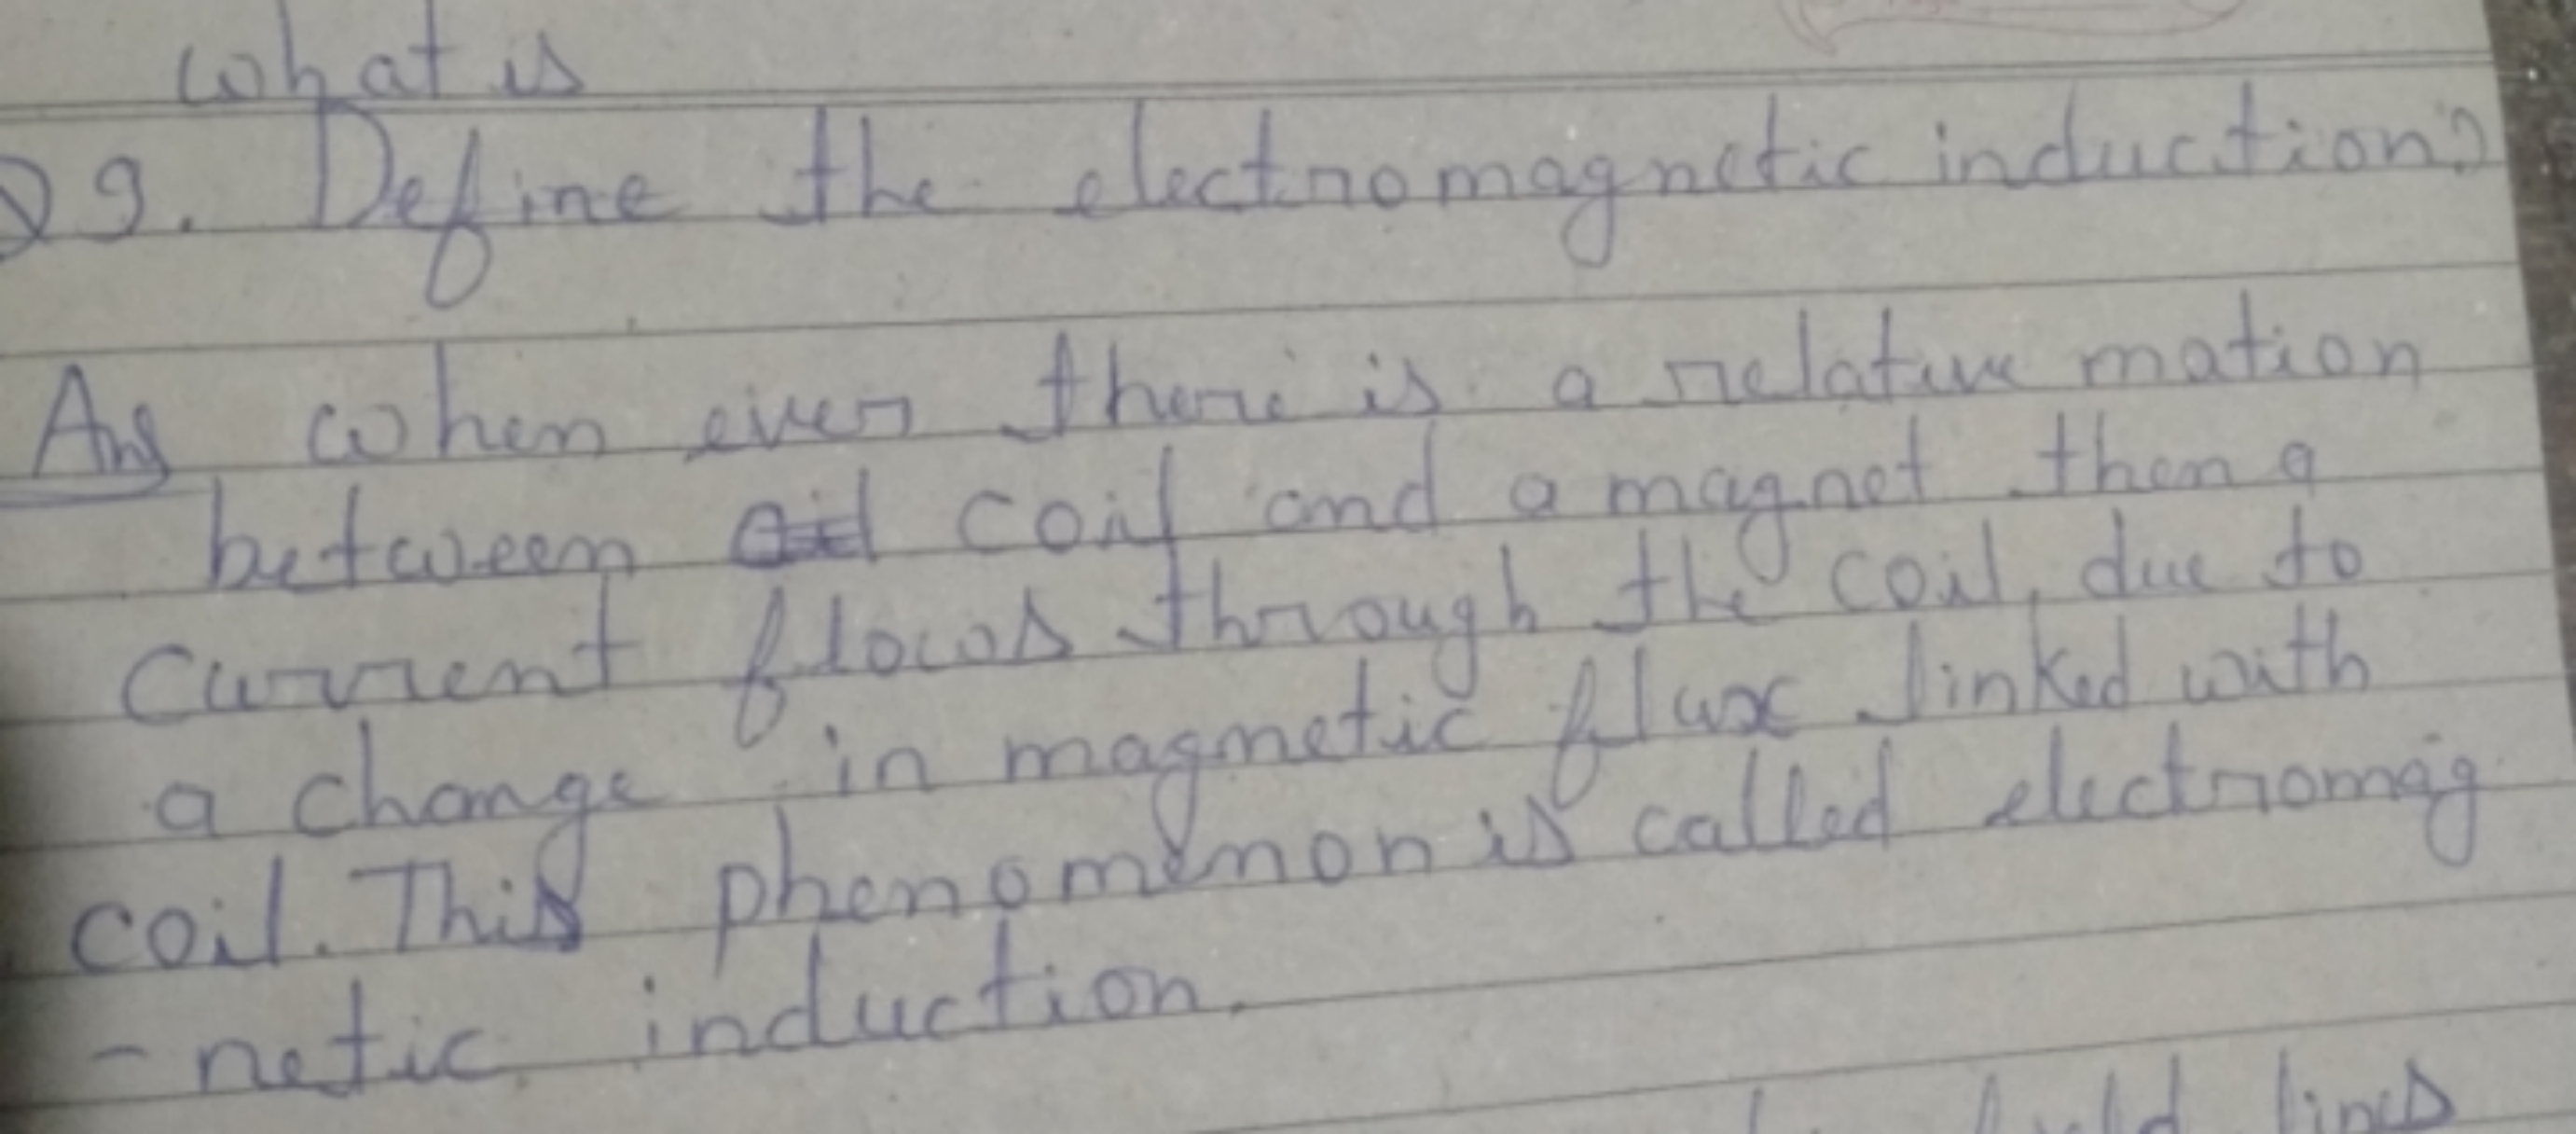 What is
Q 9. Define the electromagnetic induction?
Ans when ever there is a relative motion
between coil and a magnet then a
current flows through the coil, due to
a change in magnetic flux linked with
coil. This phenomenon is called electromag
- netic induction.
field lines